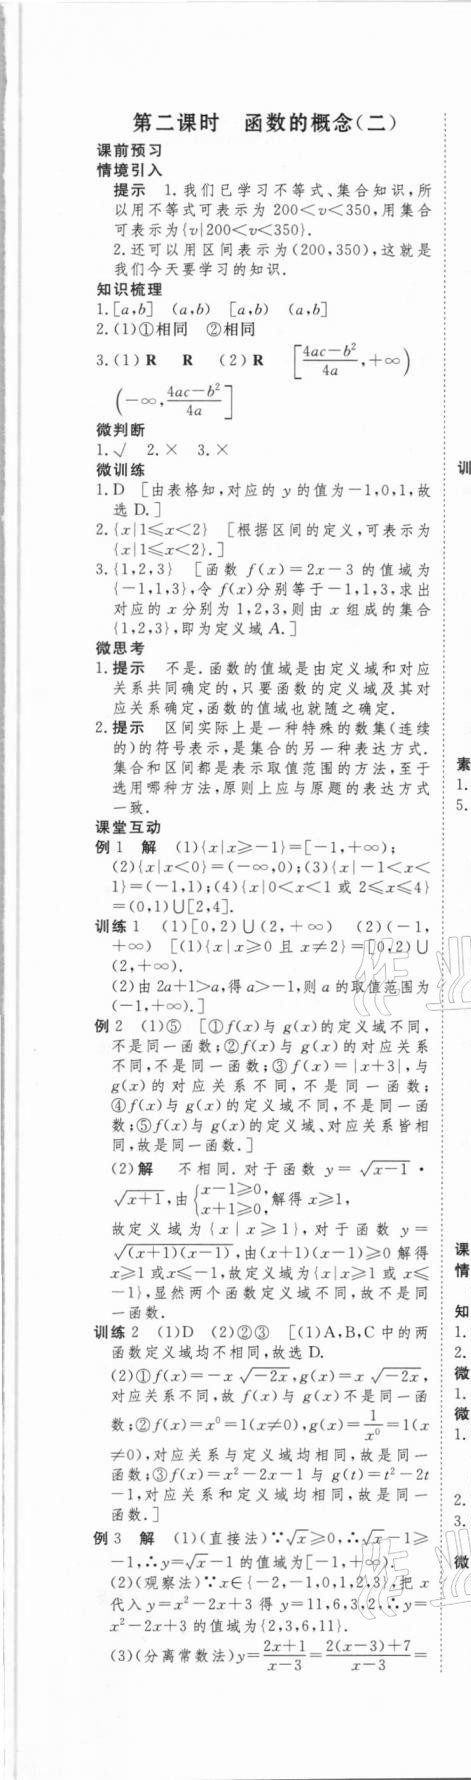 第二课时　函数的概念(二)
课前预习
情境引入
提示　1.我们已学习不等式、集合知识,所
以用不等式可表示为200<v<350,用集合
可表示为{v|200<v<350}.
2.还可以用区间表示为(200,350),这就是
我们今天要学习的知识.
知识梳理
1.[a,b]　(a,b)　[a,b)　(a,b]
2.(1)①相同　②相同
3.(1)R　R　(2)R　[(4ac-b²)/(4a),+∞)
(-∞,(4ac-b²)/(4a)]
微判断
1.√　2.×　3.×
微训练
1.D　[由表格知,对应的y的值为-1,0,1,故
选D.]
2.{x|1≤x<2}　[根据区间的定义,可表示为
{x|1≤x<2}.]
3.{1,2,3}　[函数f(x)=2x-3的值域为
{-1,1,3},令f(x)分别等于-1,1,3,求出
对应的x分别为1,2,3,则由x组成的集合
{1,2,3},即为定义域A.]
微思考
1.提示　不是.函数的值域是由定义域和对应
关系共同确定的,只要函数的定义域及其对
应关系确定,函数的值域也就随之确定.
2.提示　区间实际上是一种特殊的数集(连续
的)的符号表示,是集合的另一种表达方式.
集合和区间都是表示取值范围的方法,至于
选用哪种方法,原则上应与原题的表达方式
一致.
课堂互动
例1　解　(1){x|x≥-1}=[-1,+∞);
(2){x|x<0}=(-∞,0);(3){x|-1<x<
1}=(-1,1);(4){x|0<x<1或2≤x≤4}
=(0,1)∪[2,4].
训练1　(1)[0,2)∪(2,+∞)　(2)(-1,
+∞)　[(1){x|x≥0且x≠2}=[0,2)∪
(2,+∞).
(2)由2a+1>a,得a>-1,则a的取值范围为
(-1,+∞).]
例2　(1)⑤　[①f(x)与g(x)的定义域不同,
不是同一函数;②f(x)与g(x)的对应关系
不同,不是同一函数;③f(x)=|x+3|,与
g(x)的对应关系不同,不是同一函数;
④f(x)与g(x)的定义域不同,不是同一函
数;⑤f(x)与g(x)的定义域、对应关系皆相
同,故是同一函数.]
(2)解　不相同.对于函数y=√(x-1)·
√(x+1),由{x-1≥0, x+1≥0,解得x≥1,
故定义域为{x|x≥1},对于函数y=
√((x+1)(x-1)),由(x+1)(x-1)≥0解得
x≥1或x≤-1,故定义域为{x|x≥1或x≤
-1},显然两个函数定义域不同,故不是同
一函数.
训练2　(1)D　(2)②③　[(1)A,B,C中的两
函数定义域均不相同,故选D.
(2)①f(x)=-x√(-2x),g(x)=x√(-2x),
对应关系不同,故f(x)与g(x)不是同一函
数;②f(x)=x⁰=1(x≠0),g(x)=1/x⁰=1(x
≠0),对应关系与定义域均相同,故是同一
函数;③f(x)=x²-2x-1与g(t)=t²-2t
-1,对应关系和定义域均相同,故是同一
函数.]
例3　解　(1)(直接法)∵√x≥0,∴√x-1≥
-1,∴y=√x-1的值域为[-1,+∞).
(2)(观察法)∵x∈{-2,-1,0,1,2,3},把x
代入y=x²-2x+3得y=11,6,3,2,∴y=
x²-2x+3的值域为{2,3,6,11}.
(3)(分离常数法)y=(2x+1)/(x-3)=(2(x-3)+7)/(x-3)=
训
素
1.
5.
课
情
知
1.
2.
微
1.
微
1.
2.
3.
微
作业
作业